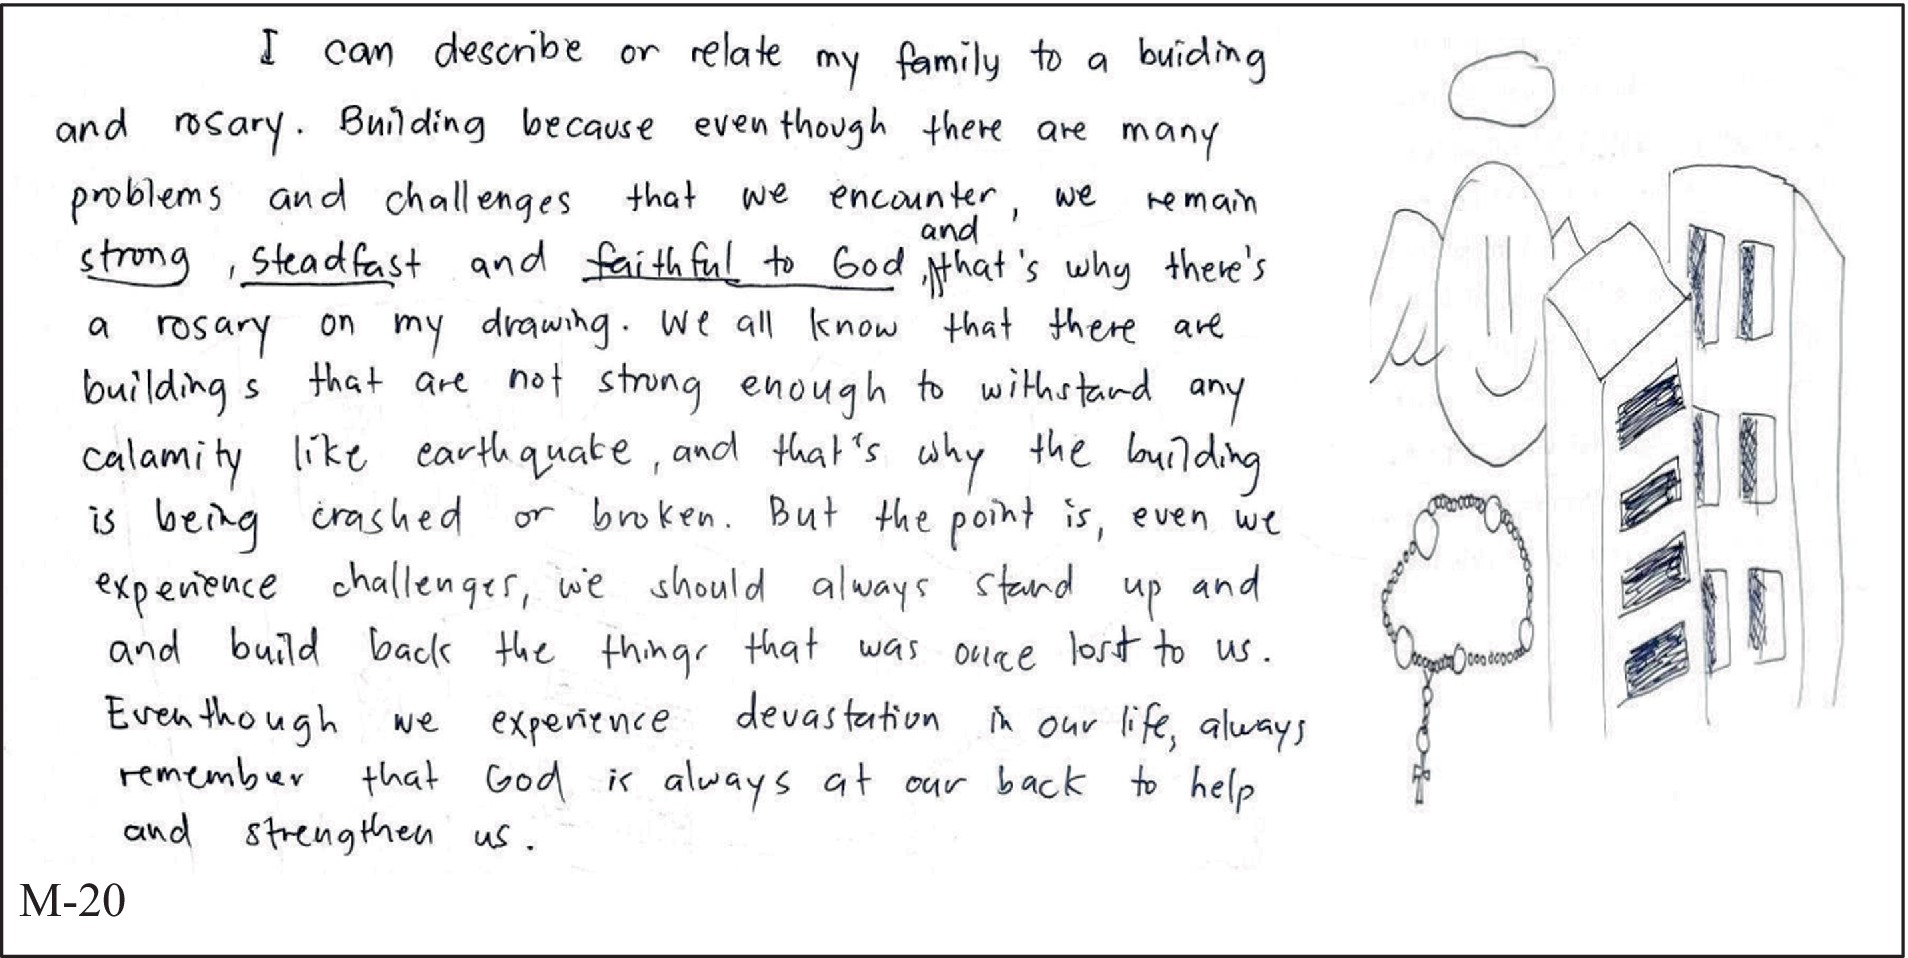 I can describe or relate my family to a buiding
and rosary. Building because eventhough there are many
problems and challenges that we encounter, we remain
strong, steadfast and faithful to God, and that's why there's
a rosary on my drawing. We all know that there are
buildings that are not strong enough to withstand any
calamity like earthquake, and that's why the building
is being crashed or broken. But the point is, even we
experience challenges, we should always stand up and
and build back the things that was once lost to us.
Eventhough we experience devastation in our life, always
remember that God is always at our back to help
and strengthen us.
M-20